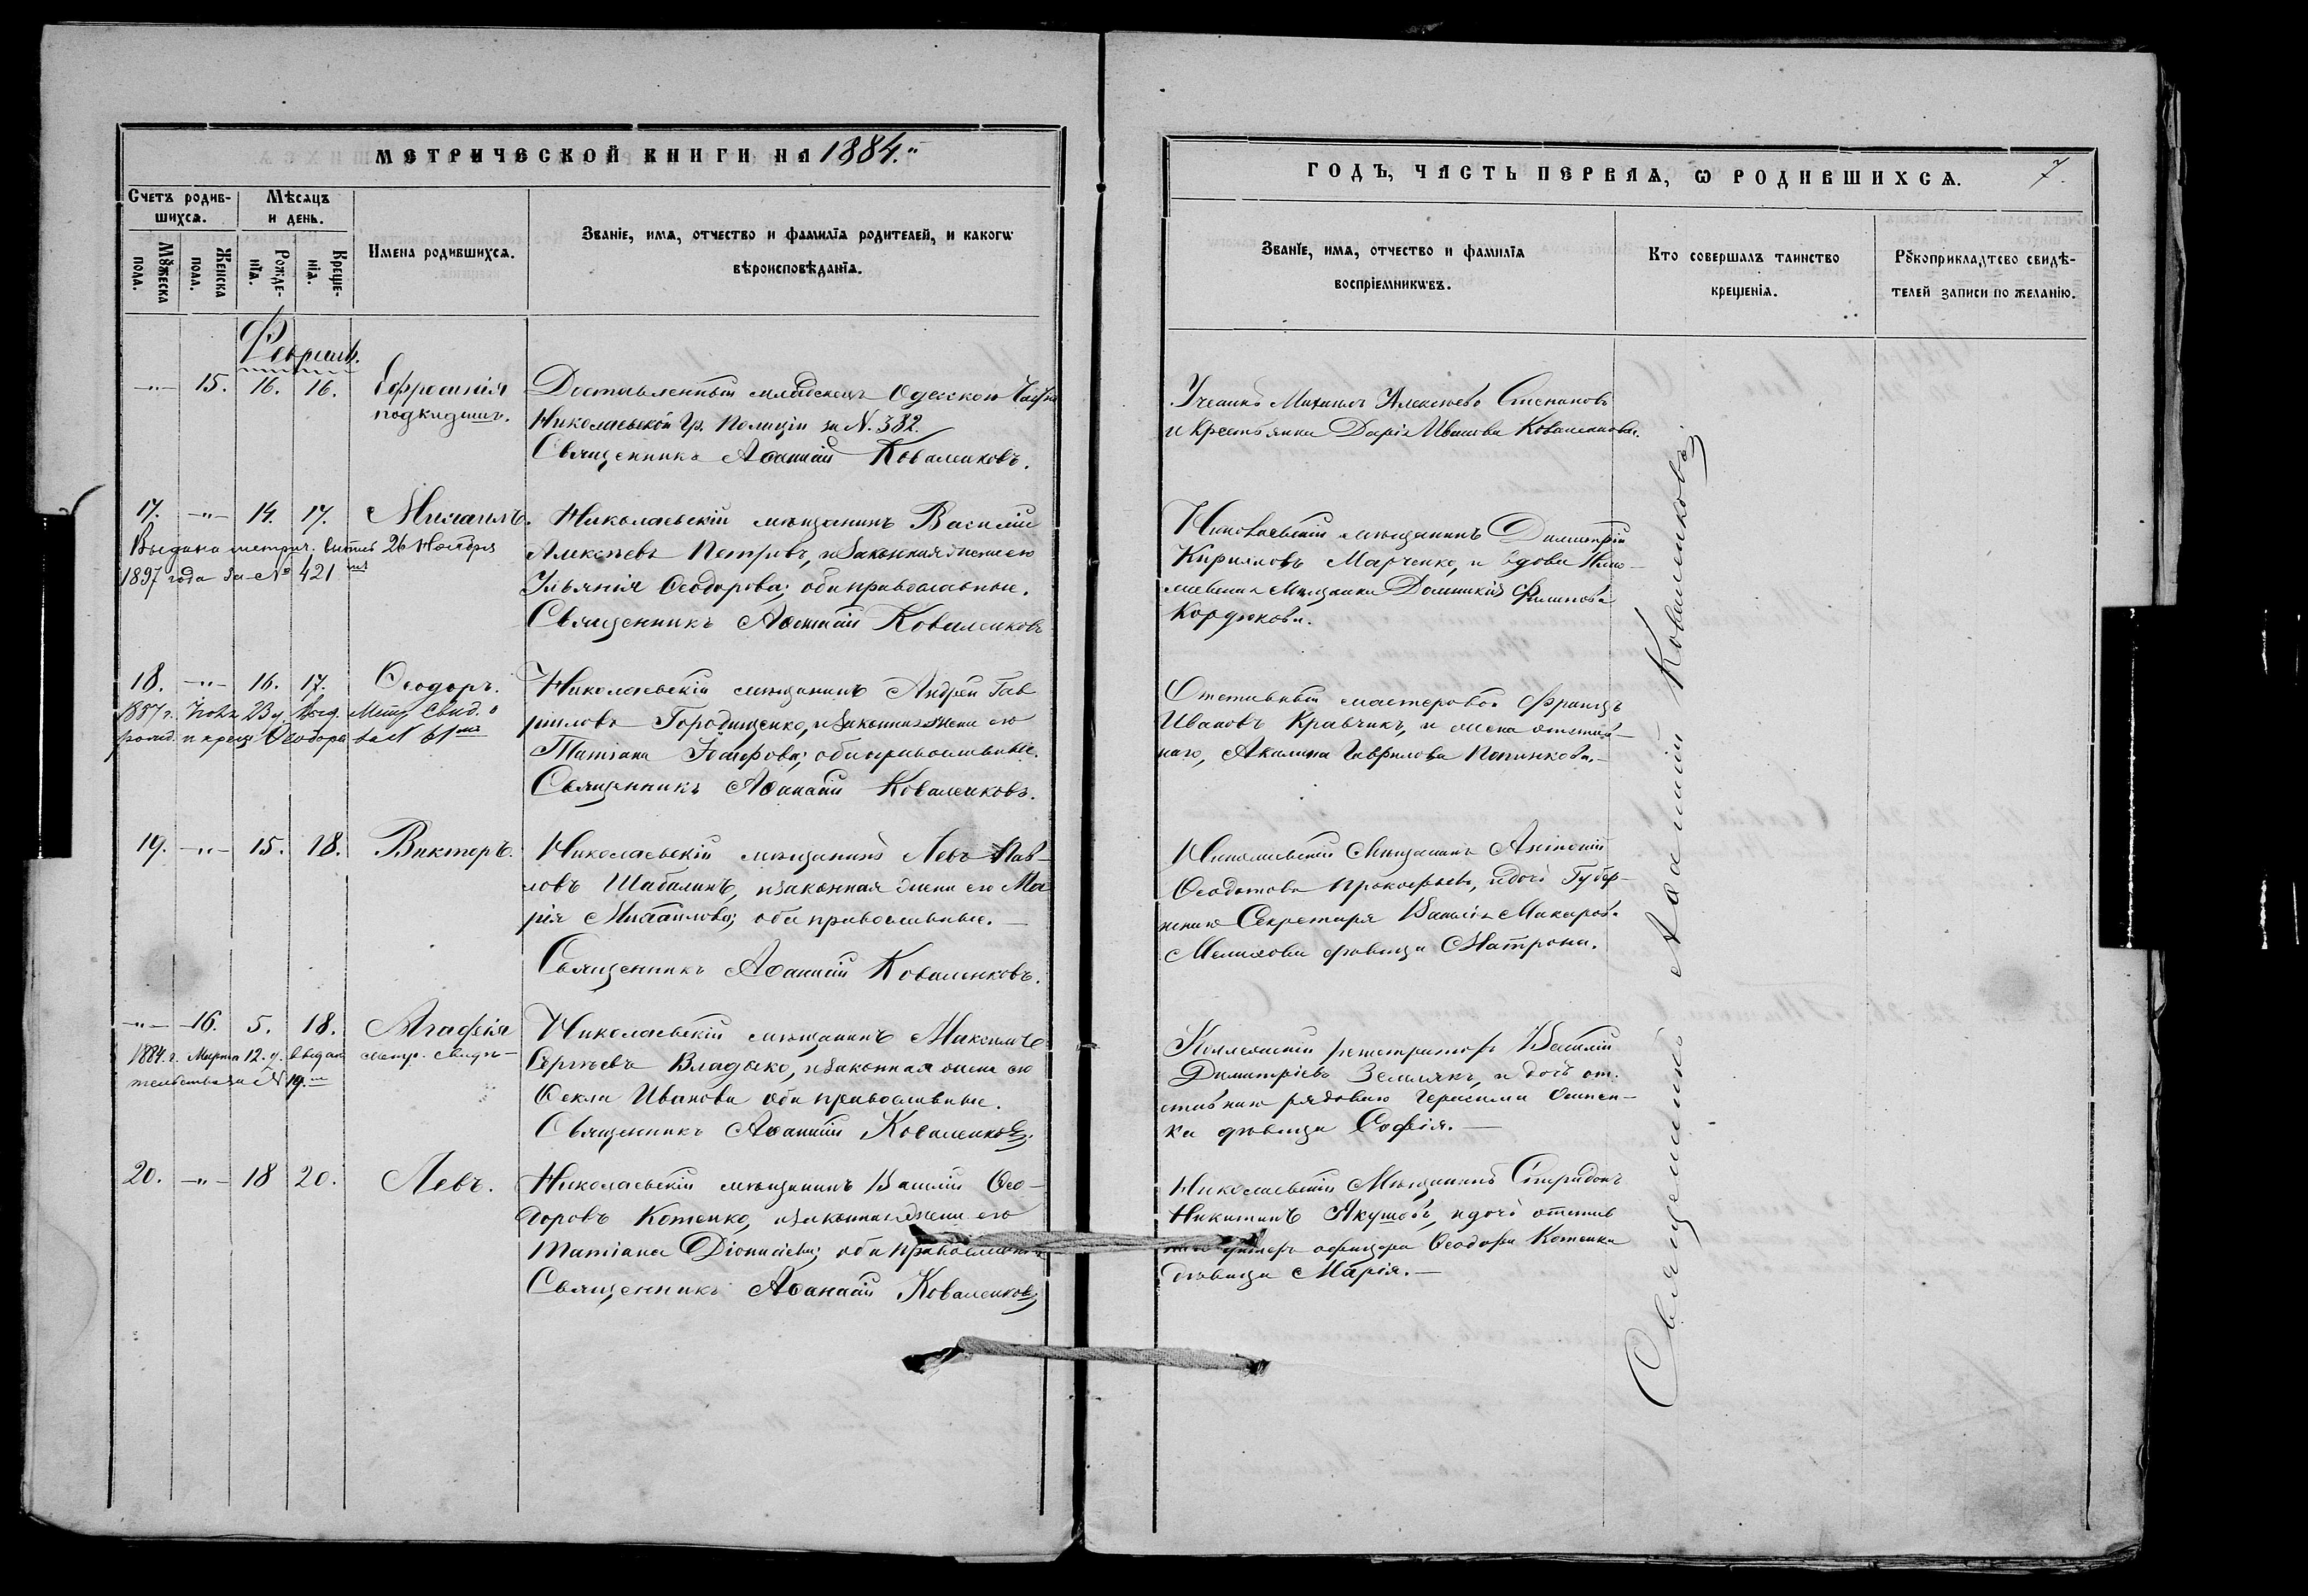 МЕТРИЧЕСКОЙ КНИГИ НА 1884.
Счетъ родив-
шихсѧ.
Мѣсѧцъ
и день.
Мꙋжеска
пола.
Женска
пола.
Рожде-
нїѧ.
Креще-
нїѧ.
Имена родившихсѧ.
Званїе, имѧ, отчество и фамилїѧ родителей, и какогѡ
вѣроисповѣданїѧ.
Февраль.
-"- 15. 16. 16. Ефросинія
подкидышъ.
Доставленный младенецъ Одесскою
Николаевской Гр. Полиціи за N. 382.
Священникъ Аѳанасій Коваленковъ.
17. -"- 14. 17. Михаилъ.
Выдана метрич. выпись 26 Ноября
1897 года за № 421
Николаевскій мѣщанинъ Василій
Алексѣевъ Петровъ, и законная жена его
Ульянія Ѳеодорова; оба православные.
Священникъ Аѳанасій Коваленковъ
18. -"- 16. 17. Ѳеодоръ.
23 д. выд. Метр. свид. о
рожд. и крещ. Ѳеодора за N 61
Николаевскій мѣщанинъ Андрей Гав
ріиловъ Городищенко, и законная жена его
Татіана; оба православные.
Священникъ Аѳанасій Коваленковъ.
19. -"- 15. 18. Викторъ.
Николаевскій мѣщанинъ Левъ Пав-
ловъ Шабалинъ, и законная жена его Ма
рія Михайлова; оба православные.
Священникъ Аѳанасій Коваленковъ.
-"- 16. 5. 18. Агафія
1884 г. Марта 12 д. выдан метр. свидѣ-
тельство за N 19.
Николаевскій мѣщанинъ Максимъ
Сергѣевъ Владыко, и законная жена его
Ѳекла Иванова оба православные.
Священникъ Аѳанасій Коваленковъ.
20. -"- 18 20. Левъ.
Николаевскій мѣщанинъ Василій Ѳео-
доровъ Котенко, и законная жена его
Татіана Діонисіева; оба православные
Священникъ Аѳанасій Коваленковъ
ГОДЪ, ЧАСТЬ ПЕРВАѦ, Ѡ РОДИВШИХСѦ. 7.
Званїе, имѧ, отчество и фамилїѧ
воспрїемникѡвъ.
Кто совершалъ таинство
крещенїѧ.
Рꙋкоприкладство свидѣ-
телей записи по желанїю.
Михаилъ Алексѣевъ Степановъ
и Крестьянка Дарія Иванова Коваленкова.
Николаевскій мѣщанинъ Димитрій
Кириловъ Марченко, и вдова Нико-
лаевская Мѣщанка Домникія Филипова
Кордюкова.
Отставный мастеровой Францъ
Ивановъ Кравчикъ, и жена отстав-
наго, Акилина Гаврилова
Николаевскій Мѣщанинъ Антоній
Ѳеодотовъ Прокофьевъ, и дочь Губер-
нскаго Секретаря Василія Макаров.
Мелихова дѣвица Матрона.
Коллежскій регистраторъ Василій
Димитріевъ Землякъ, и дочь от-
ставнаго рядоваго Герасима
ка дѣвица Софія.
Николаевскій Мѣщанинъ Спиридонъ
Никитинъ Якушовъ, и дочь отстав
наго унтеръ офицера Ѳеодора Котенка
дѣвица Марія.
Священникъ Аѳанасій Коваленковъ